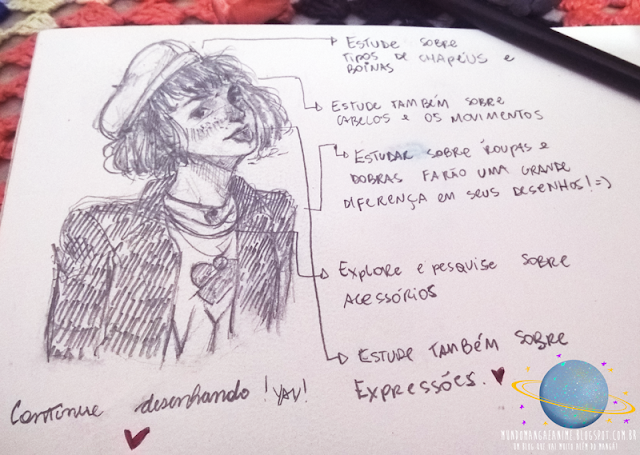 Estude sobre
tipos de chapéus e
boinas
Estude também sobre
cabelos e os movimentos
Estudar sobre roupas e
dobras farão uma grande
diferença em seus desenhos! =)
Explore e pesquise sobre
acessórios
Estude também sobre
expressões. ♥
Continue desenhando! Yay!
♥
MUNDOMANGAEANIME.BLOGSPOT.COM.BR
UM BLOG QUE VAI MUITO ALÉM DO MANGÁ!